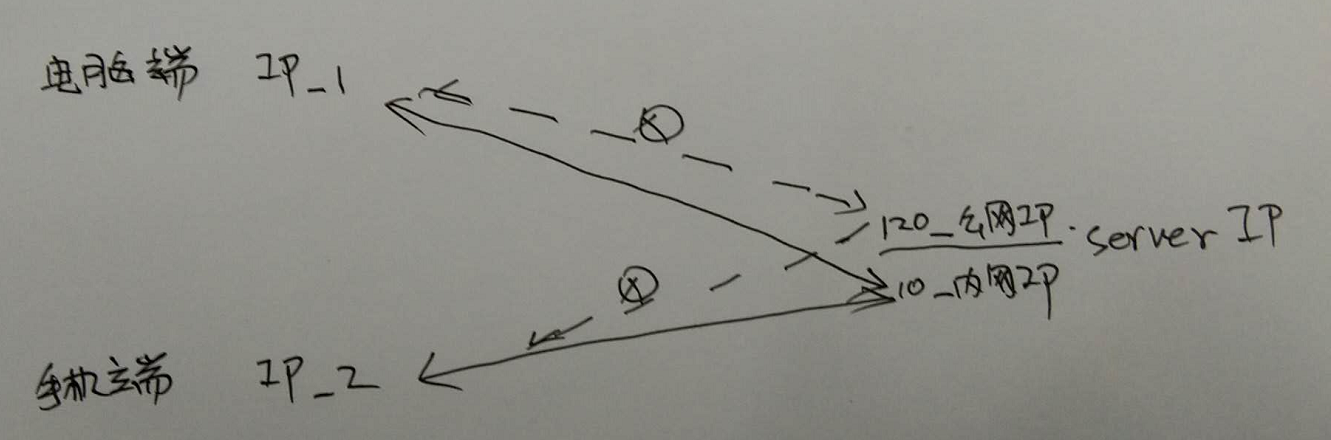 电脑端 IP_1
120_公网IP. server IP
10_内网IP
手机端 IP_2